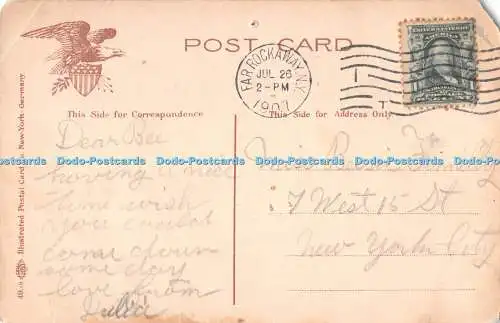 POST CARD
FAR ROCKAWAY, N.Y.
JUL 26
2-PM
1907
This Side for Correspondence
This Side for Address Only
Illustrated Postal Card New-York Germany
Dear Bee
having a nice
time wish
you could
come down
some day
love from
Julia
Miss
7 West 15 St
New York City
Dodo-Postcards Dodo-Postcards Dodo-Postcards Dodo-Postcards
Dodo-Postcards Dodo-Postcards Dodo-Postcards Dodo-Postcards